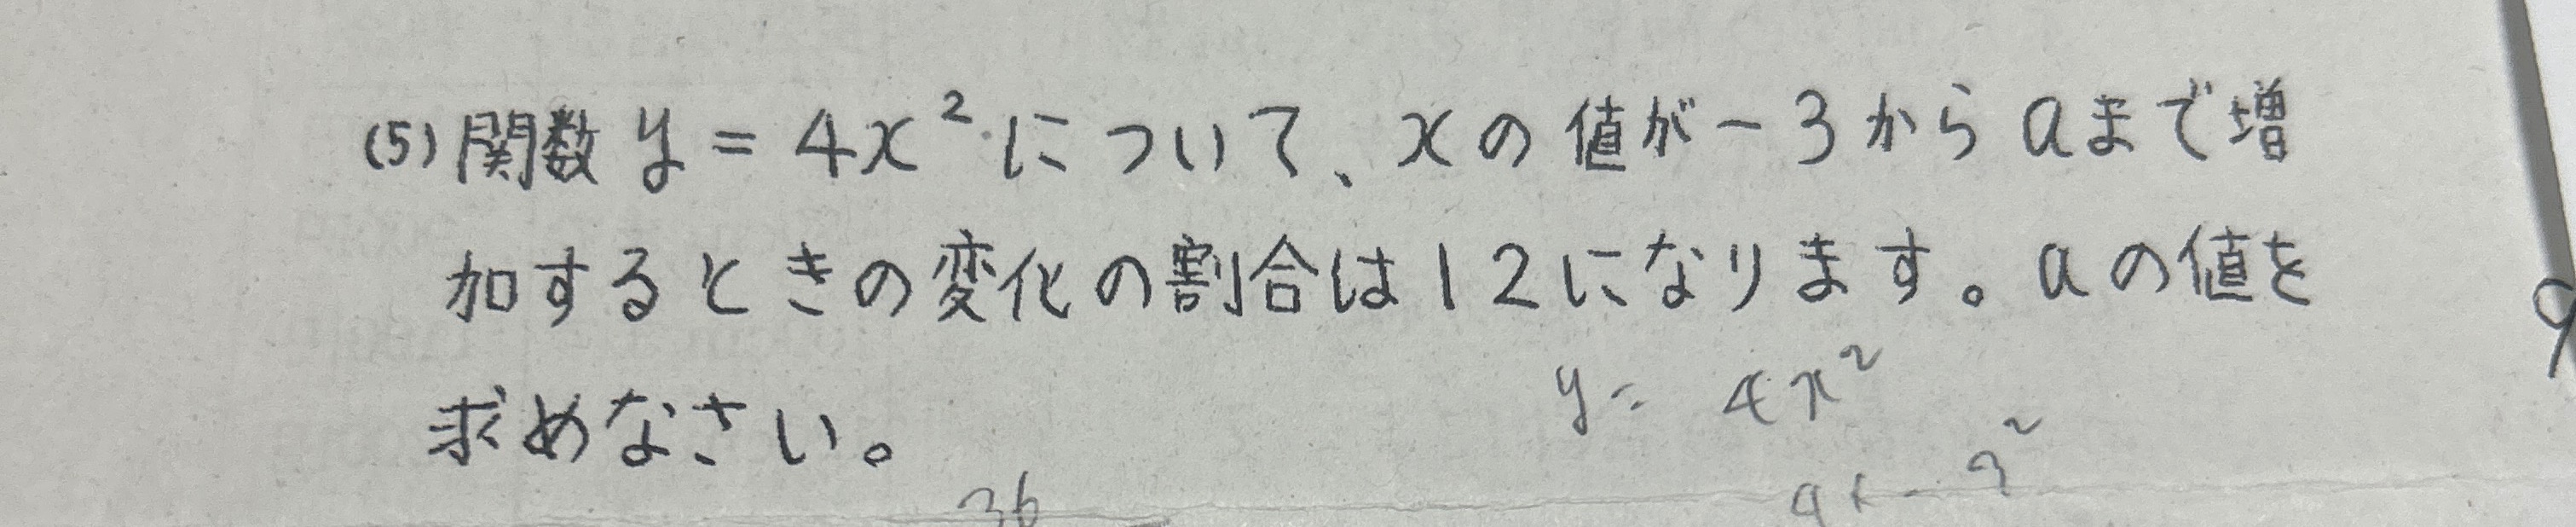 (5) 関数 y = 4x²について、xの値が-3からaまで増
加するときの変化の割合は12になります。aの値を
求めなさい。
y = 4x²
36